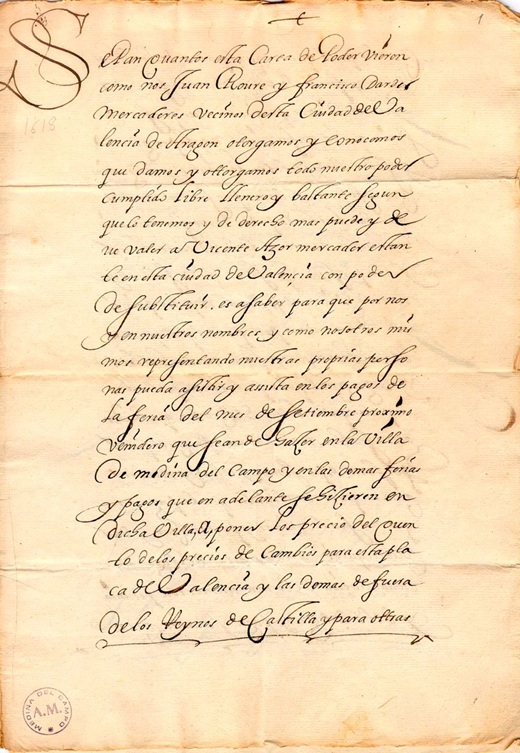 1
1618
Sepan quantos esta Carta de Poder vieren
como nos Juan Roure y francisco Dardes
mercaderes vecinos desta Ciudad de Va
lencia de Aragon otorgamos y conocemos
que damos y ottorgamos todo nuestro poder
cumplido libre llenero y bastante segun
que lo tenemos y de derecho mas puede y de
ve valer a Vicente Azor mercader estan
te en esta ciudad de Valencia con poder
de substituir. es a saber para que por nos
y en nuestros nombres y como nosotros mis
mos representando nuestras proprias perso
nas pueda asistir y assista en los pagos de
la feria del mes de setiembre proximo
venidero que se an de hazer en la Villa
de medina del Campo y en las demas ferias
y pagos que en adelante se hizieren en
dicha Villa, A poner los precio del quen
to de los precios de Cambios para esta pla
ça de Valencia y las demas de fuera
de los Reynos de Castilla y para ottras
MEDINA DEL CAMPO
A.M.